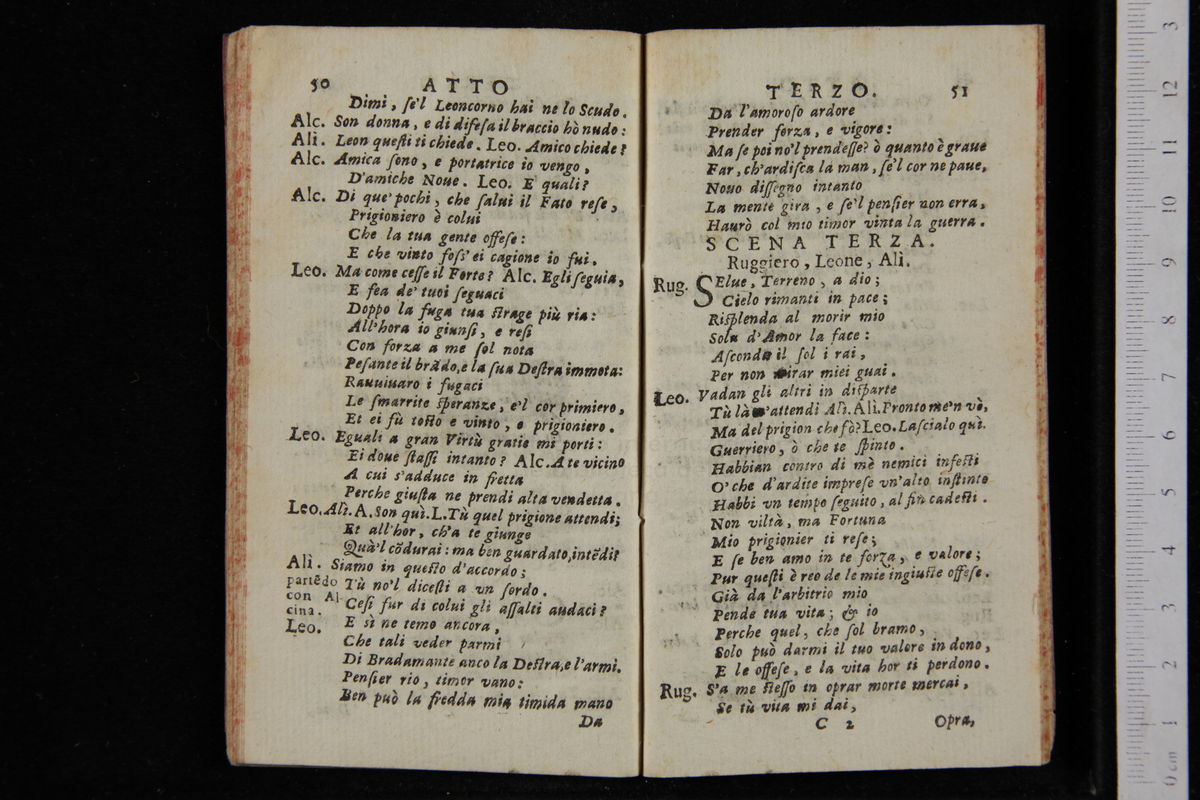 50 ATTO
Dimi, ſe'l Leoncorno hai ne lo Scudo.
Alc. Son donna, e di difeſa il braccio hò nudo:
Alì. Leon queſti ti chiede. Leo. Amico chiede?
Alc. Amica ſono, e portatrice io vengo,
D'amiche Noue. Leo. E quali?
Alc. Di que' pochi, che ſalui il Fato reſe,
Prigioniero è colui
Che la tua gente offeſe:
E che vinto foſs' ei cagione io fui.
Leo. Ma come ceſſe il Forte? Alc. Egli ſeguia,
E fea de' tuoi ſeguaci
Doppo la fuga tua ſtrage più ria:
All'hora io giunſi, e reſi
Con forza a me ſol nota
Peſante il brãdo, e la ſua Deſtra immota:
Rauuiuaro i fugaci
Le ſmarrite ſperanze, e'l cor primiero,
Et ei fù toſto e vinto, e prigioniero.
Leo. Eguali a gran Virtù gratie mi porti:
Ei doue ſtaſſi intanto? Alc. A te vicino
A cui s'adduce in fretta
Perche giuſta ne prendi alta vendetta.
Leo. Alì. A. Son quì. L. Tù quel prigione attendi;
Et all'hor, ch'a te giunge
Quà'l cõdurai: ma ben guardato, intẽdi?
Alì. Siamo in queſto d'accordo;
partẽdo Tù no'l diceſti a vn ſordo.
con Al
cina. Ceſi fur di colui gli aſſalti audaci?
Leo. E sì ne temo ancora,
Che tali veder parmi
Di Bradamante anco la Deſtra, e l'armi.
Penſier rio, timor vano:
Ben può la fredda mia timida mano
Da
TERZO. 51
Da l'amoroſo ardore
Prender forza, e vigore:
Ma ſe poi no'l prendeſſe? ò quanto è graue
Far, ch'ardiſca la man, ſe'l cor ne paue,
Nouo diſſegno intanto
La mente gira, e ſe'l penſier non erra,
Haurò col mio timor vinta la guerra.
SCENA TERZA.
Ruggiero, Leone, Alì.
Rug. SElue, Terreno, a dio;
Cielo rimanti in pace;
Riſplenda al morir mio
Sola d'Amor la face:
Aſconda il ſol i rai,
Per non mirar miei guai.
Leo. Vadan gli altri in diſparte
Tù là m'attendi Alì. Alì. Pronto me'n vò,
Ma del prigion che fò? Leo. Laſcialo quì.
Guerriero, ò che te ſpinto
Habbian contro di mè nemici infeſti
O' che d'ardite impreſe vn'alto inſtinto
Habbi vn tempo ſeguito, al fin cadeſti.
Non viltà, ma Fortuna
Mio prigionier ti reſe;
E ſe ben amo in te forza, e valore;
Pur queſti è reo de le mie ingiuſte offeſe.
Già da l'arbitrio mio
Pende tua vita; & io
Perche quel, che ſol bramo,
Solo può darmi il tuo valore in dono,
E le offeſe, e la vita hor ti perdono.
Rug. S'a me ſteſſo in oprar morte mercai,
Se tù vita mi dai,
C 2 Opra,
0 cm 1 2 3 4 5 6 7 8 9 10 11 12 3